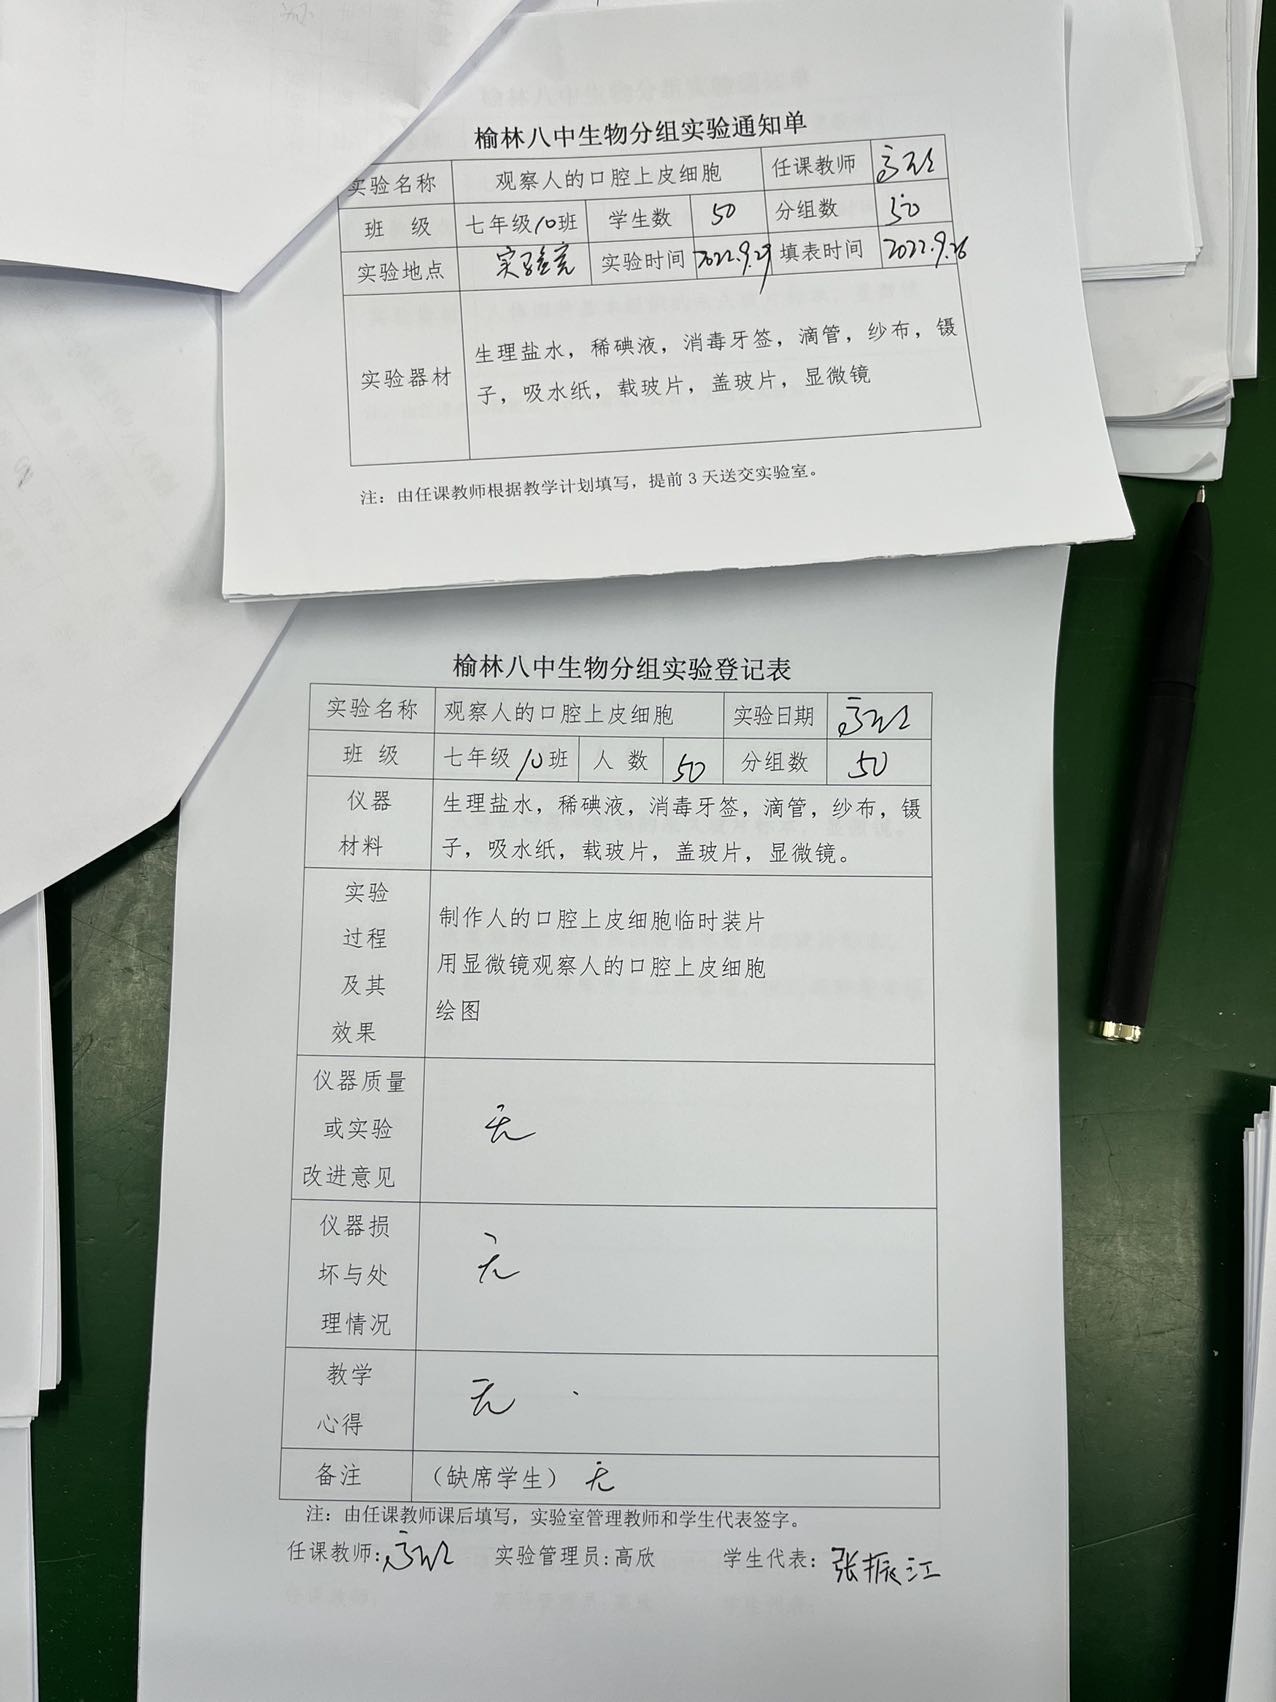 榆林八中生物分组实验通知单
实验名称 观察人的口腔上皮细胞 任课教师
班 级 七年级10班 学生数 50 分组数 50
实验地点 实验室 实验时间 2022.9.29 填表时间 2022.9.26
实验器材 生理盐水，稀碘液，消毒牙签，滴管，纱布，镊
子，吸水纸，载玻片，盖玻片，显微镜
注：由任课教师根据教学计划填写，提前 3 天送交实验室。
榆林八中生物分组实验登记表
实验名称 观察人的口腔上皮细胞 实验日期
班 级 七年级10班 人 数 50 分组数 50
仪器 生理盐水，稀碘液，消毒牙签，滴管，纱布，镊
材料 子，吸水纸，载玻片，盖玻片，显微镜。
实验
过程
及其
效果
制作人的口腔上皮细胞临时装片
用显微镜观察人的口腔上皮细胞
绘图
仪器质量
或实验
改进意见
无
仪器损
坏与处
理情况
无
教学
心得
无
备注 （缺席学生） 无
注：由任课教师课后填写，实验室管理教师和学生代表签字。
任课教师: 实验管理员:高欣 学生代表：张振江